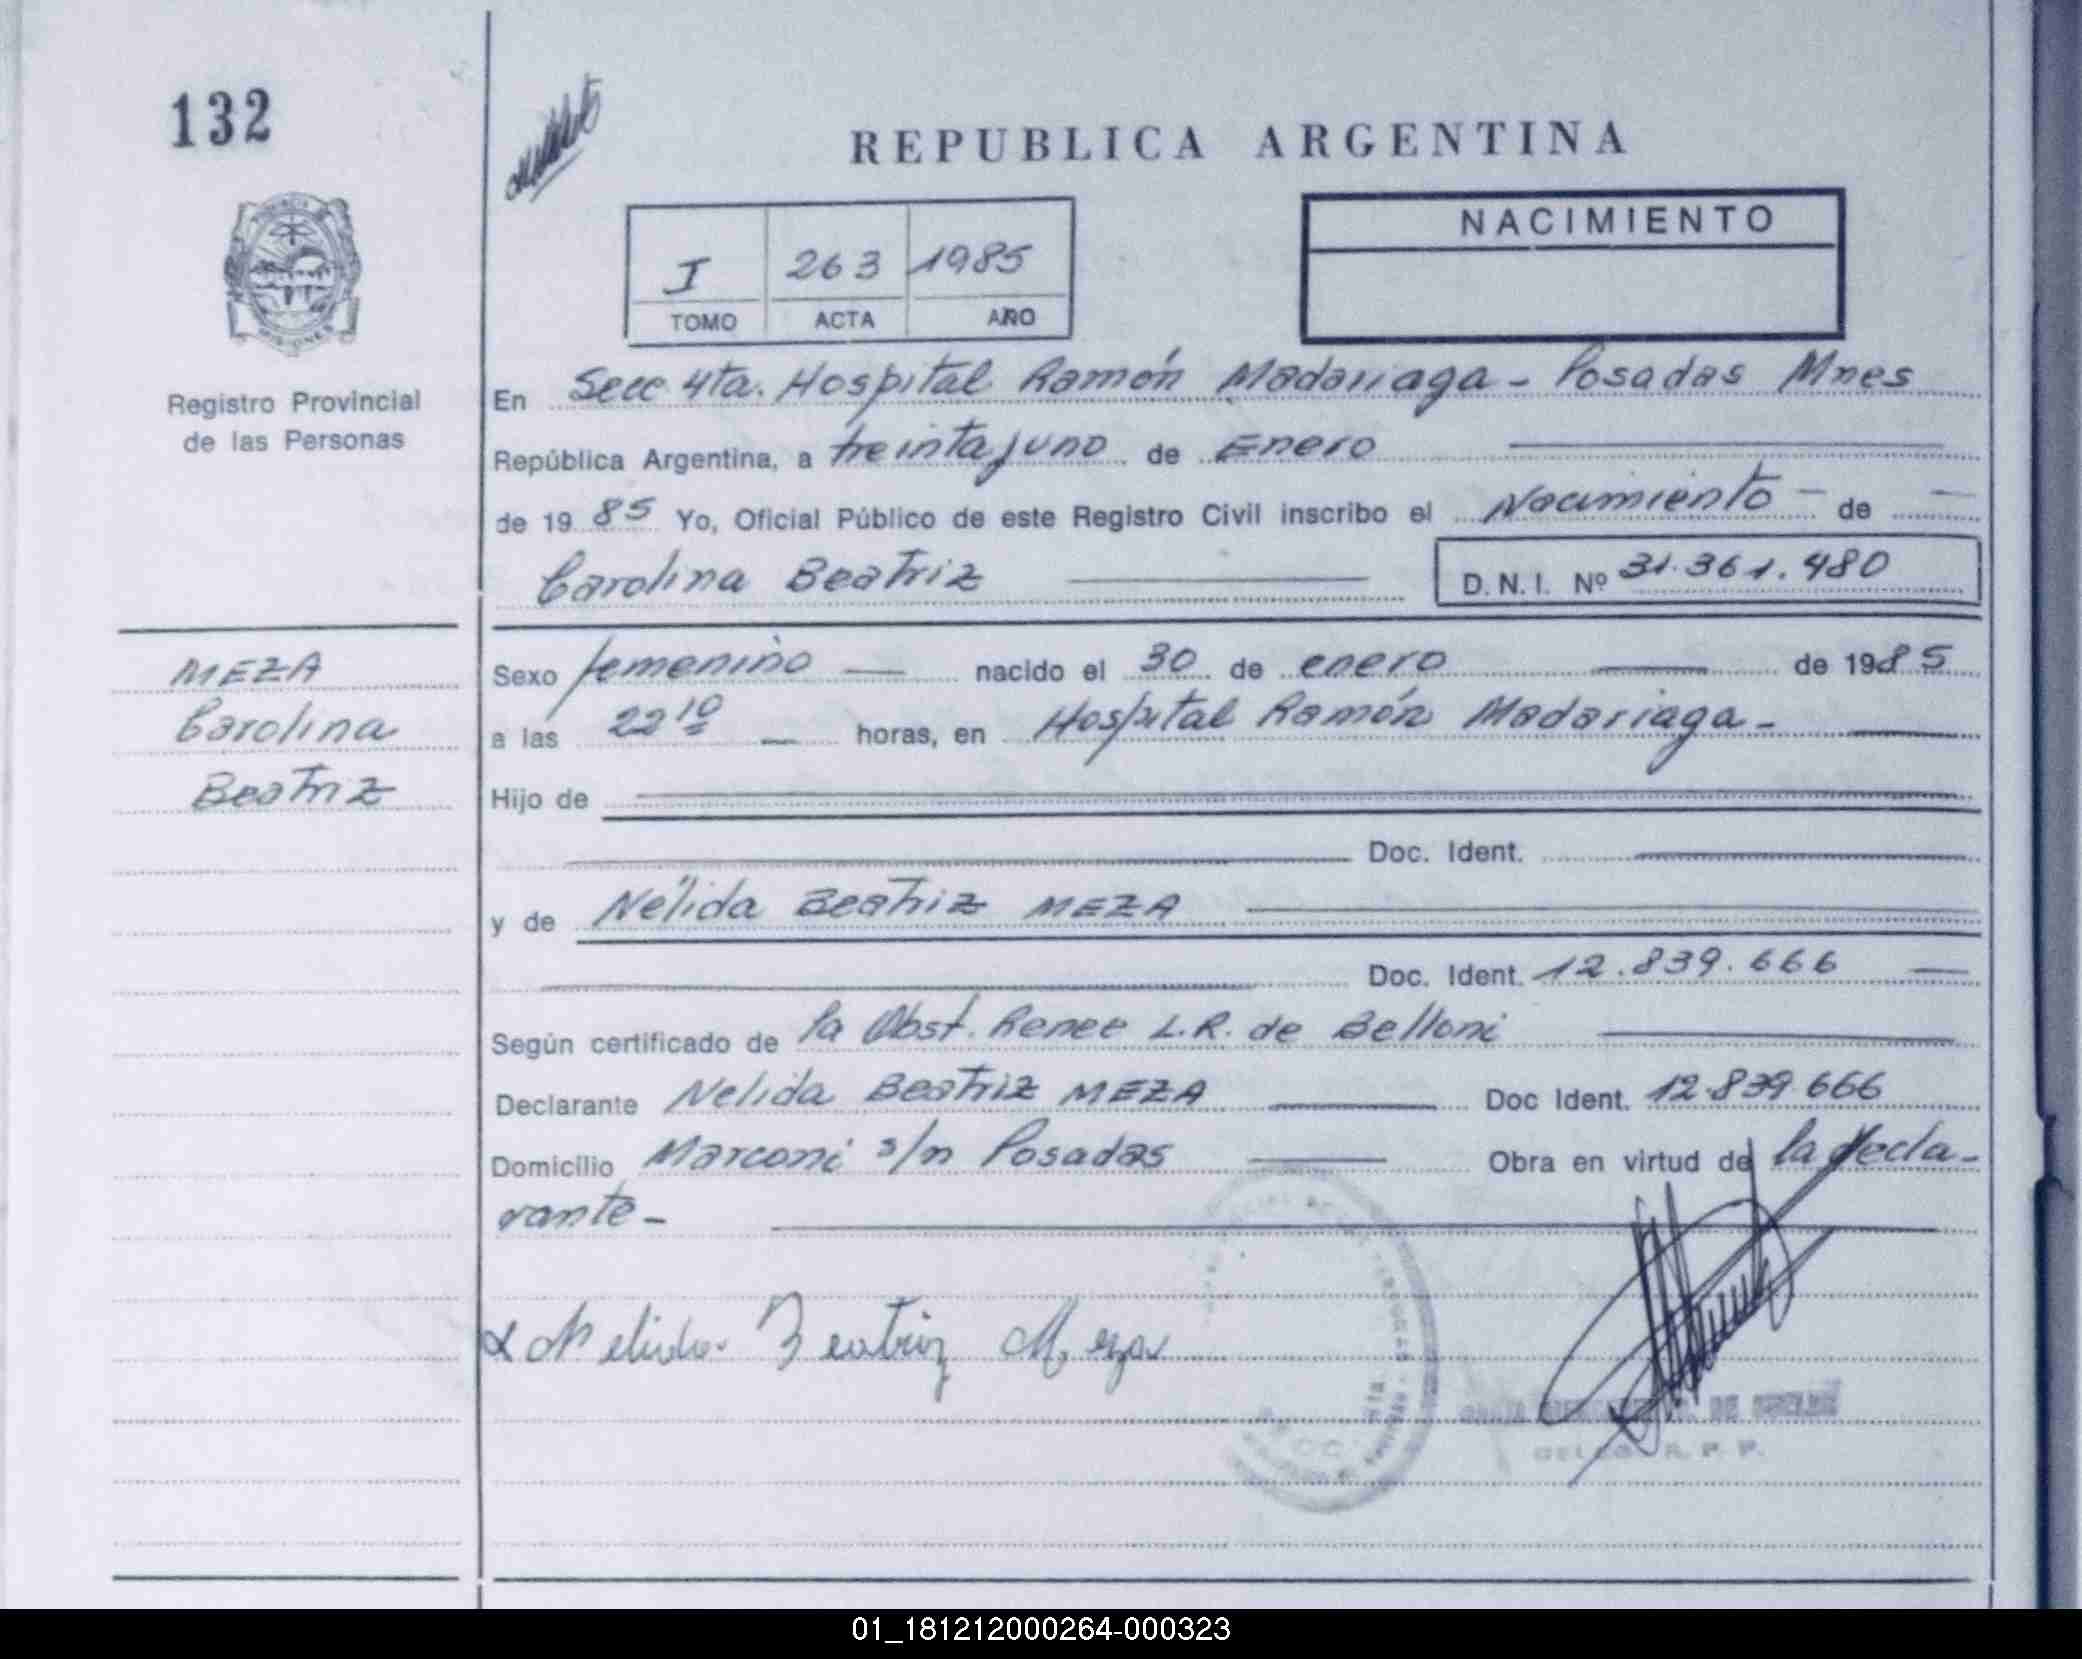 132
REPUBLICA ARGENTINA
I 263 1985
TOMO ACTA AÑO
NACIMIENTO
Registro Provincial
de las Personas
En Secc 4ta. Hospital Ramón Madariaga - Posadas Mnes
República Argentina, a treinta y uno de Enero
de 19 85 Yo, Oficial Público de este Registro Civil inscribo el Nacimiento de
Carolina Beatriz D.N.I. Nº 31.361.480
MEZA
Carolina
Beatriz
Sexo femenino nacido el 30 de enero de 1985
a las 22 10 horas, en Hospital Ramón Madariaga -
Hijo de
Doc. Ident.
y de Nélida Beatriz MEZA
Doc. Ident. 12.839.666
Según certificado de la Obst. Renee L.R. de Belloni
Declarante Nelida Beatriz MEZA Doc Ident. 12.839.666
Domicilio Marconi s/n Posadas Obra en virtud de la decla-
rante -
Nelida Beatriz Meza
R. P. P.
01_181212000264-000323